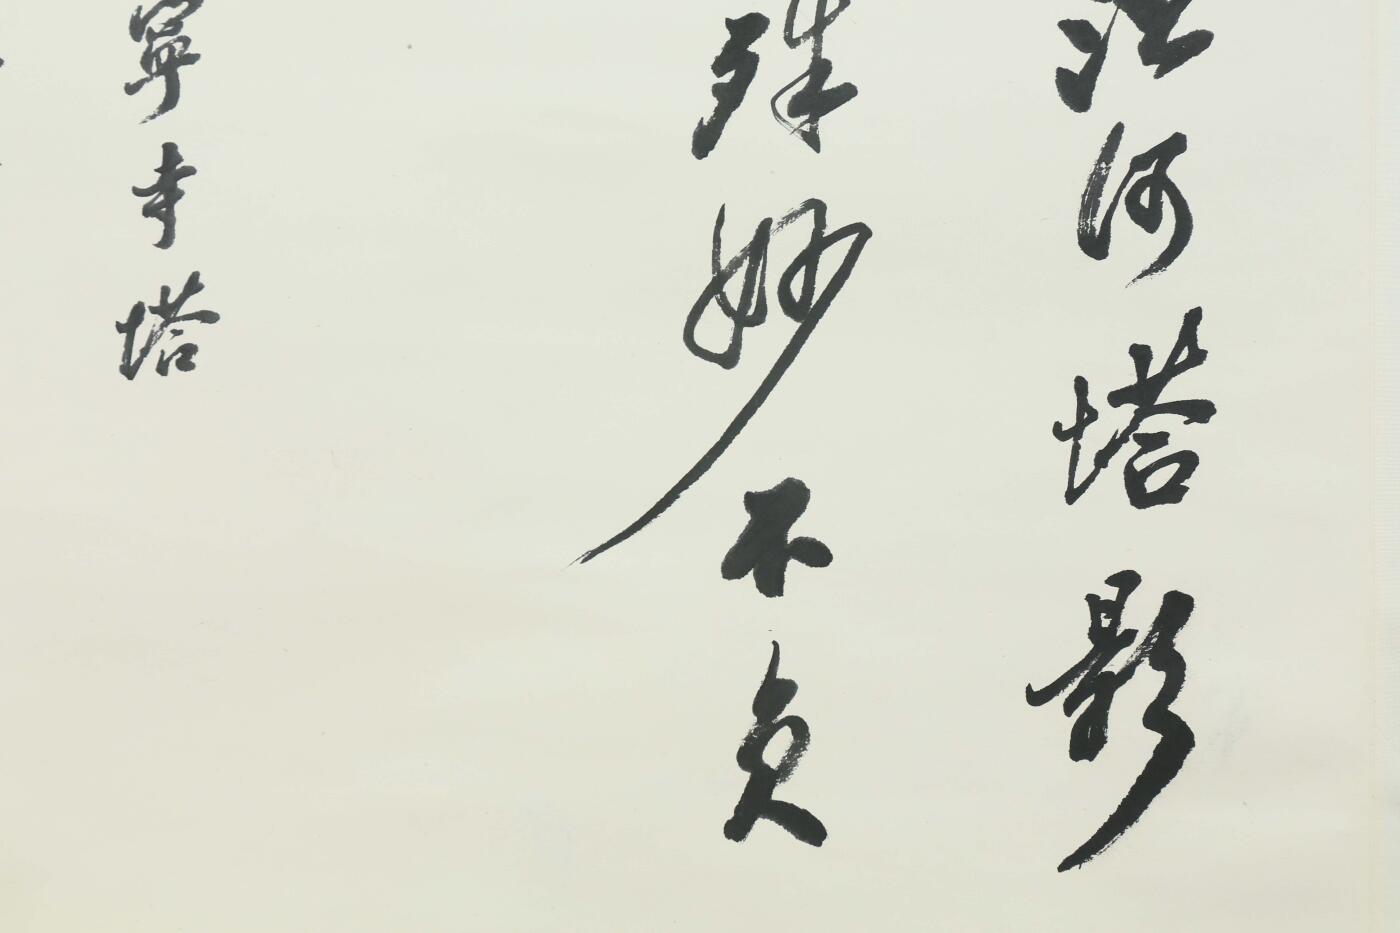 河塔影
殊妙不负
寧寺塔